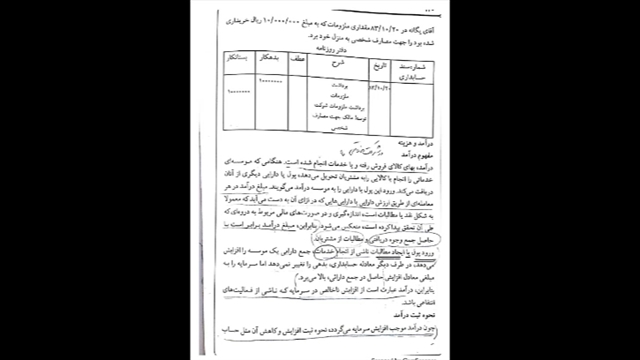 آقای یگانه در ۸۳/۱۰/۲۰ مقداری ملزومات که به مبلغ ۱۰/۰۰۰/۰۰۰ ریال خریداری
شده بود را جهت مصارف شخصی به منزل خود برد.
دفتر روزنامه
شماره سند حسابداری تاریخ شرح عطف بدهکار بستانکار
۸۳/۱۰/۲۰ برداشت ۱۰۰۰۰۰۰۰
ملزومات ۱۰۰۰۰۰۰۰
برداشت ملزومات شرکت
توسط مالک جهت مصارف
شخصی
درآمد و هزینه
مفهوم درآمد
درآمد، بهای کالای فروش رفته و یا خدمات انجام شده است. هنگامی که موسسه‌ای
خدماتی را انجام یا کالایی را به مشتریان تحویل می‌دهد، پول یا دارایی دیگری از آنان
دریافت می‌کند. ورود این پول یا دارایی را به موسسه درآمد می‌گویند. مبلغ درآمد در هر
معامله‌ای از طریق ارزش دارایی یا دارایی‌هایی که در ازای آن به دست می‌آید که معمولا
به شکل نقد یا مطالبات است، اندازه‌گیری و در صورت‌های مالی مربوط به دوره‌ای که
طی آن تحقق پیدا کرده است، منعکس می‌شود. بنابراین، مبلغ درآمد برابر است با
حاصل جمع وجوه دریافتی و مطالبات از مشتریان.
ورود پول یا ایجاد مطالبات ناشی از انجام خدمات، جمع دارایی یک موسسه را افزایش
می‌دهد، در طرف دیگر معادله حسابداری، بدهی را تغییر نمی‌دهد اما سرمایه را به
مبلغی معادل افزایش حاصل در جمع دارائی، بالا می‌برد.
بنابراین، درآمد عبارت است از افزایش ناخالص در سرمایه که ناشی از فعالیت‌های
انتفاعی باشد.
نحوه ثبت درآمد
چون درآمد موجب افزایش سرمایه می‌گردد، نحوه ثبت افزایش و کاهش آن مثل حساب